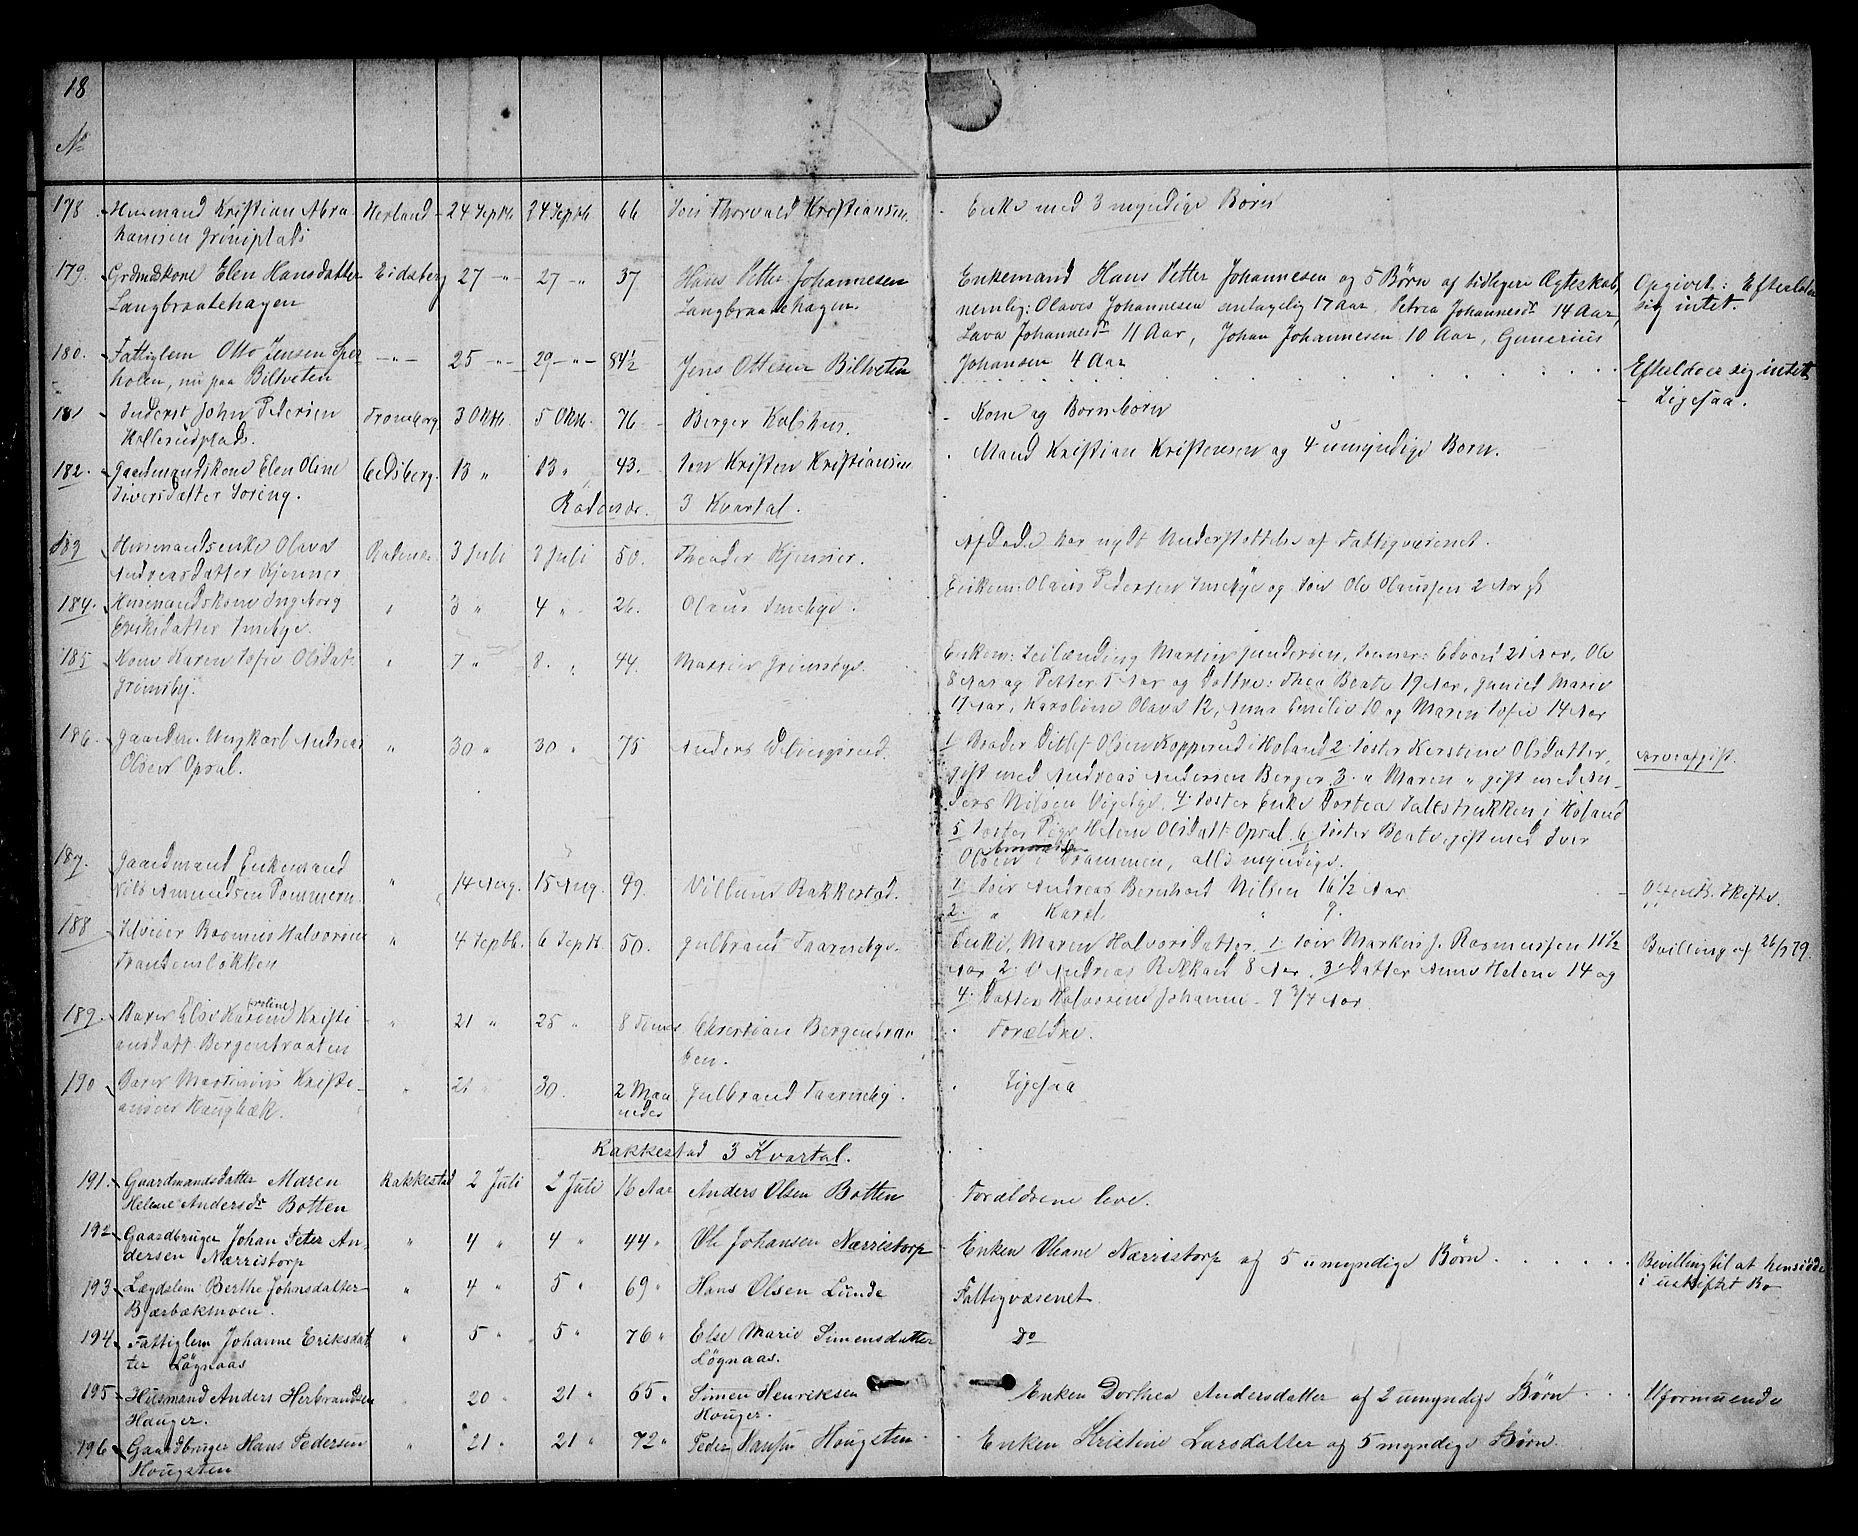 18
No
178. Husmand Kristian Abra Herland 24 Septb. 24 Septb. 66 Søn Thorvald Kristiansen Enke med 3 myndige Børn
hamsen Grøniplads
179. Grdmdskone Elen Hansdatter Eidsberg 27 -"- 27 -"- 37 Hans Petter Johannesen Enkemand Hans Petter Johannesen og 5 Børn af tidligere Ægteskab, Opgivet: Efterlod
Langbraatehagen Langbraatehagen. nemlig: Olaves Johannesen antagelig 17 aar, Petrea Johannesdr 14 Aar, sig intet.
Lava Johannesdr 11 Aar, Johan Johannesen 10 Aar, Gunerius
180. Fattiglem Otto Jensen Sper -"- 25 -"- 29 -"- 84½ Jens Ottesen Biltveten Johansen 4 Aar Efterlader sig intet
holen, nu paa Biltveten
181 Inderst John Pedersen Tromborg 3 Oktb. 5 Oktb. 76 Berger Kolshus. Kone og Børnebørn Ligesaa.
Hollerudplads.
182. Gaardmandskone Elen Oline Eidsberg. 13 " 13 " 43. Søn Kristen Kristiansen Mand Kristian Kristensen og 4 umyndige Børn.
Siversdatter Soring.
Rødenæs. 3 Kvartal.
183 Husmandsenke Olava Rødenæs 3 Juli 3 Juli 50. Theodor Kjenner. Afdøde har nydt Understøttelse af Fattigvæsenet.
Andreasdatter Kjenner
184. Husmandskone Ingeborg " 3 " 4 " 26. Olaus Smebye. Enkem: Olaus Pedersen Smebye og Søn Ole Olaussen 2 Aar gl
Eriksdatter Smebye.
185 Kone Karen Sofie Olsdat. " 7 " 8. " 44. Martin Grimsbye. Enkem: Leilænding Martin Gundersen, Sønner: Edvard 21 Aar, Ole
Grimsby. 8 Aar og Petter 5 Aar og Døttre: Thea Beate 19 Aar, Gunild Marie
17 Aar, Karoline Olava 12, Anna Emilie 10 og Maren Sofie 14 Aar
186. Gaardm. Ungkarl Andreas " 30 " 30 " 75 Anders 1 Broder Ditlef Olsen Kopperud i Høland 2. Søster Kerstine Olsdatter, Arveafgift.
Olsen Opsal. gift med Andreas Andersen Berger 3. " Maren " gift med An-
ders Nilsen Vigebye, 4. Søster Enke Dortea i Høland
5 Søster Pige Helene Olsdatt. Opsal. 6 Søster Beate, gift med Iver
Olsen i Drammen, alle myndige.
187. Gaardmand Enkemand " 14 Aug. 15 Aug. 49. Rakkestad. 1. Søn Andreas Bernhard Nilsen 16 1/2 Aar Offentl. Skifte.
Nils Amundsen Pommern 2. " Karl " 9.
188 Selveier Rasmus Halvorsen " 4 Septb. 6 Septb. 50. Gulbrand Taarnebye. Enke, Maren Halvorsdatter, 1 Søn Markus J. Rasmussen 11 1/2 Bevilling af 26/9 79.
Trandemsløkken Aar 2. D Andreas Rikkard 8 Aar. 3. Datter Anne Helene 14 og
4. Datter Halvorine Johanne 9 3/4 Aar
189. Barn Else Karine (roline) Kristi " 21 " 25 " 8 Timer Christian Bergenbraa Forældre.
ansdatt. Bergenbraaten ten.
190 Barn Martinius Kristi- " 21 " 30. 2 Maa Gulbrand Taarneby. Ligesaa
ansen Haugbæk. neder
Rakkestad 3 Kvartal.
191. Gaardmandsdatter Maren Rakkestad 2 Juli 2 Juli 16 Aar Anders Olsen Botten Forældrene leve.
Helene Andersdr Botten
192 Gaardbruger Johan Peter An- " 4 " 4 " 44 " Ole Johansen Nærristorp Enken Oleane Nærristorp og 5 umyndige Børn Bevilling til at hensidde
dersen Nærristorp i uskiftet Bo
193 Lægdslem Berthe Johnsdatter " 4 " 5 " 69 " Hans Olsen Lunde Fattigvæsenet
Bjærbækmoen.
194 Fattiglem Johanne Eriksdat " 5 " 5 " 76 " Else Marie Simensdatter Do
ter Løgnaas Løgnaas.
195 Husmand Anders Herbrandsen " 20 " 21 " 65 " Simen Henriksen Enken Dorthea Andersdatter af 2 umyndige Børn Uformuende
Houger. Houger.
196 Gaardbruger Hans Pedersen " 21 " 21 " 72 " Peder Hansen Hougsten Enken Kristine Larsdatter og 5 myndige Børn
Hougsten